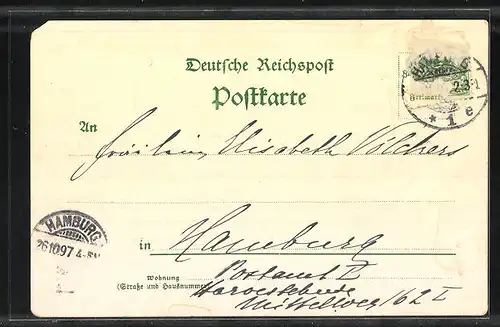 Deutsche Reichspost
Postkarte
2-3
* 1 e
An
Fräulein Elisabeth Völchers
HAMBURG
26.10.97 4-5N
in Hamburg
Postamt
Wohnung
(Straße und Hausnummer)
Harvestehude
Mittelweg 162 I